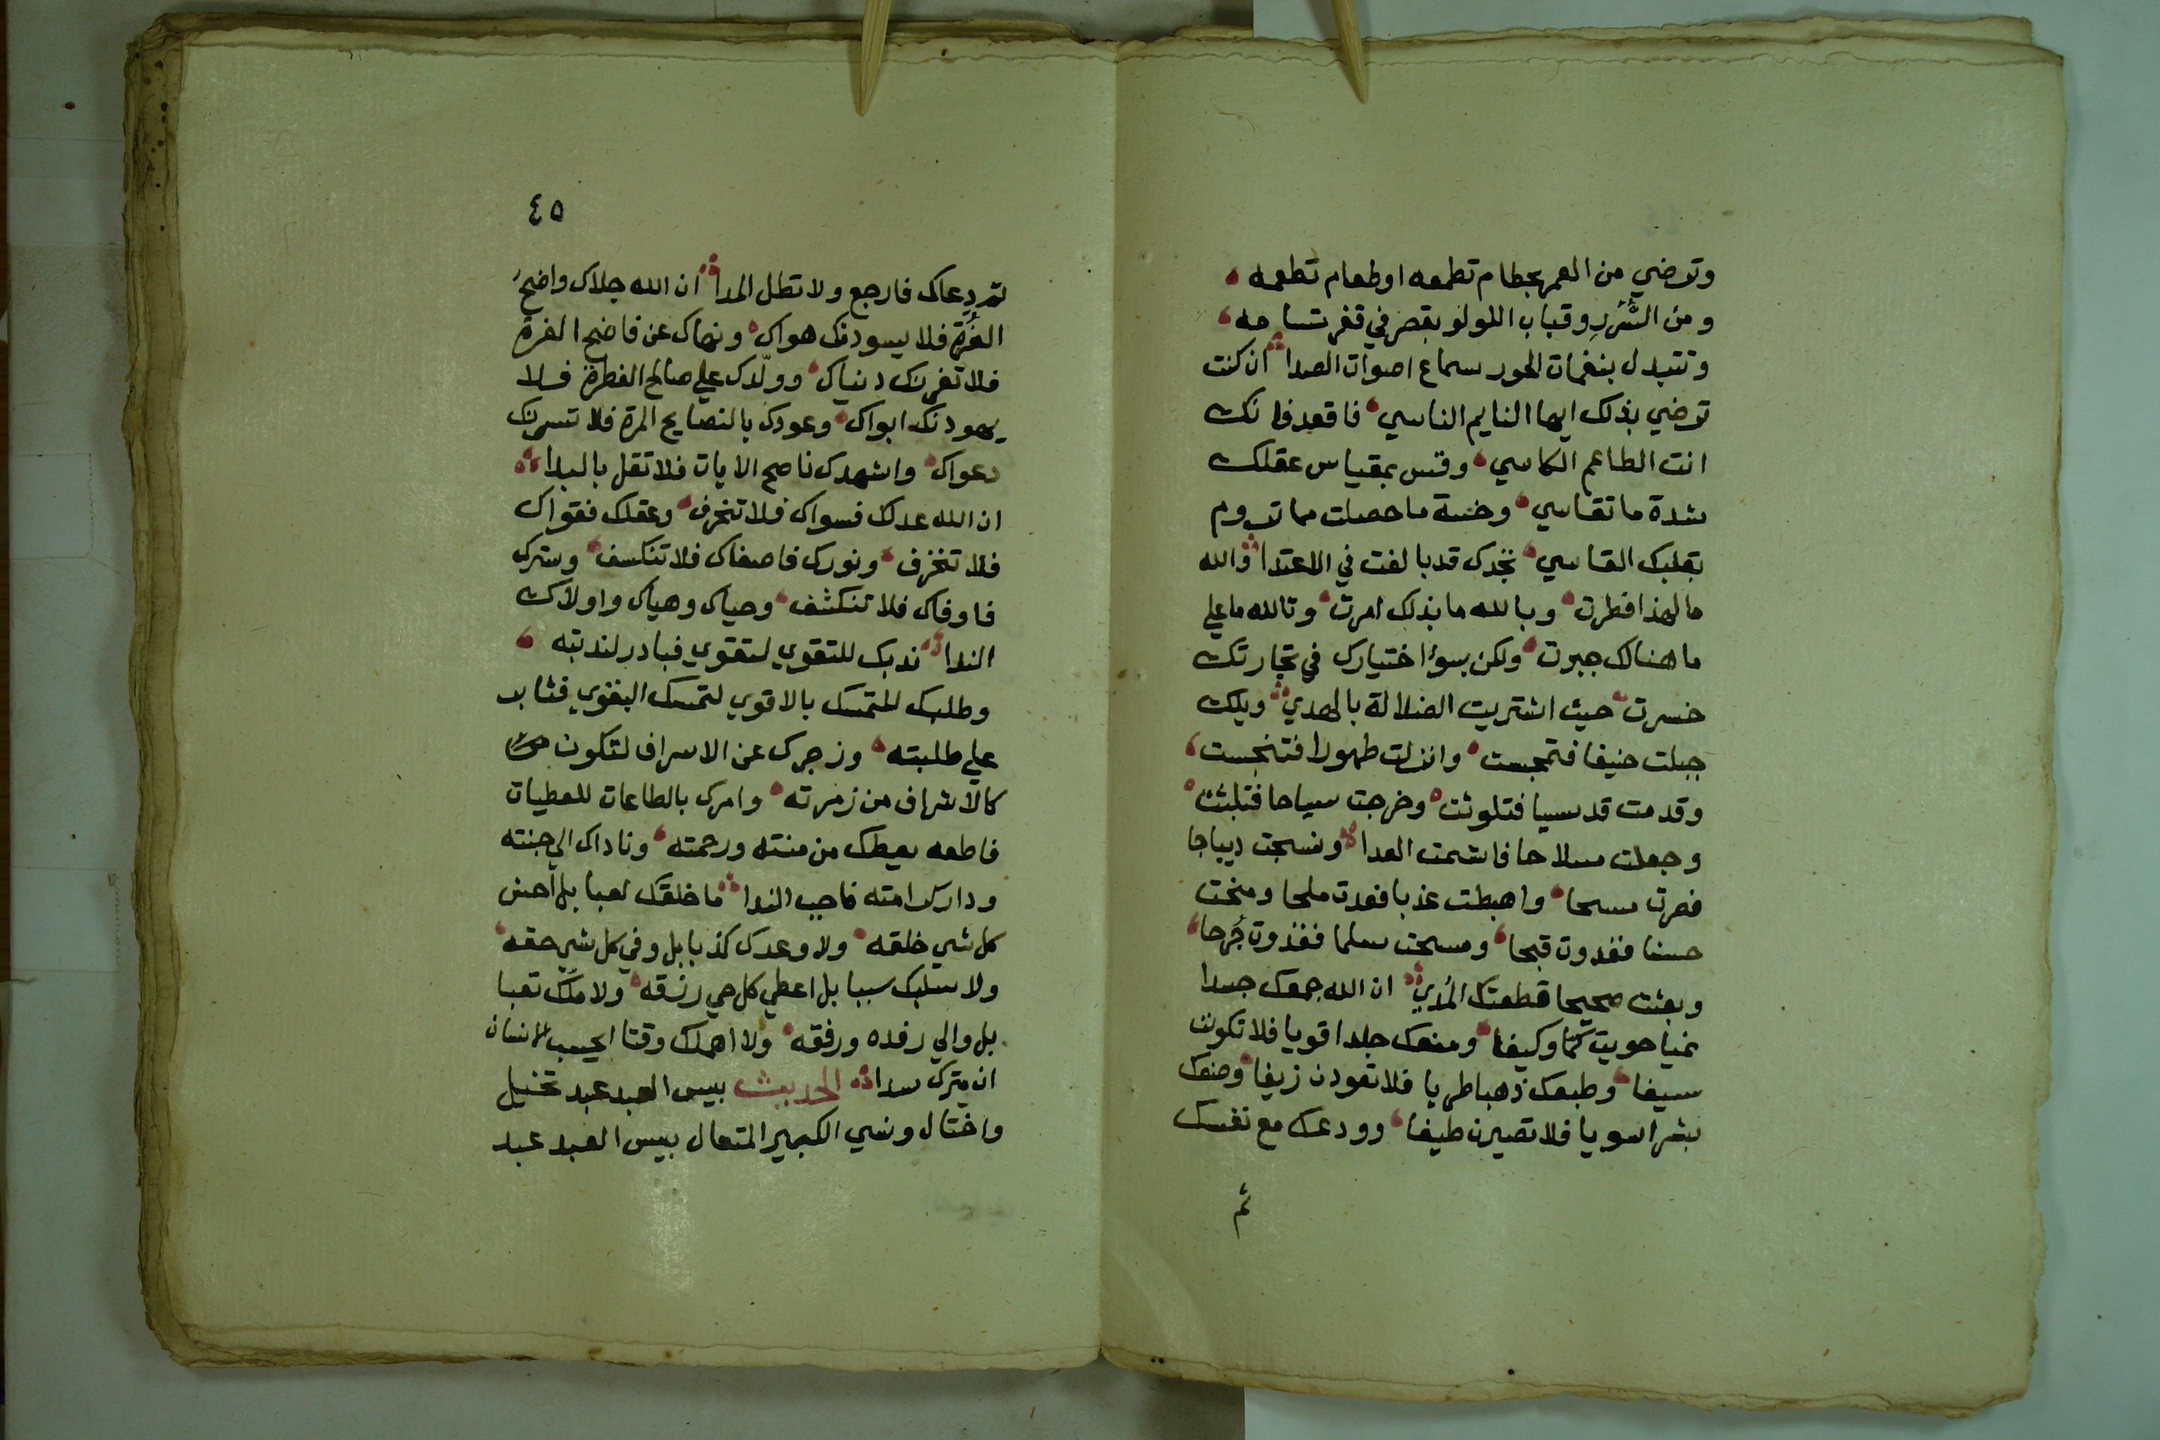 وترضي من العمر بحطام تطمعه او طعام تطعمه
ومن السُّرُرِ وقباب اللولو بقصر في قفر تساحه
وتتبدل بنغمات الحور سماع اصوات الصدا ان كنت
ترضي بذلك ايها النايم الناسي فاقعد فانك
انت الطاعم الكاسي وقس بمقياس عقلك
شدة ما تقاسي وخسة ما حصلت مما تروم
بقلبك القاسي تجدك قد بالغت في الاعتدا فوالله
ما لهذا فطرت وبالله ما بذلك امرت وتالله ما علي
ما هنالك جبرت ولكن بسؤ اختيارك في تجارتك
خسرت حيث اشتريت الضلالة بالهدي ويلك
جبلت حنيفا فتمجست وانزلت طهورا فتنجست
وقدمت قدسيا فتلوثت وخرجت سياحا فتلبثت
وجعلت سلاحا فاشمت العدا ونسجت ديباجا
فصرت مسحا واهبطت عذبا فعدت ملحا ومنحت
حسنا فغدوت قبحا ومسحت سلما فغدوت جُرحا
وبعثت صحيحا قطعتك المُدي ان الله جمعك جسدا
نميا حويت كمًّا وكيفا ومنعك جلدا قويا فلا تكونن
سيفا وطبعك ذهبا طريا فلا تعودن زيفا وصنعك
بشرا سويا فلا تصيرن طيفا وودعك مع نفسك
ثم
٤٥
ثم دعاك فارجع ولا تطل المدا ان الله جلاك واضح
الغُرَّةِ فلا يسودنك هواك ونهاك عن فاضح الغرة
فلا تغرنك دنياك وولّدك علي صالح الفطرة فلا
يهودنك ابواك وعودك بالنصايح المرة فلا تسرنك
دعواك واشهدك ناصح الايات فلا تقل بالبدا
ان الله عدلك فسواك فلا تنحرف وعقلك فقواك
فلا تنخرف ونورك فاصفاك فلا تنكسف وسترك
فاوفاك فلا تنكشف وحياك وهياك واولاك
الندا ندبك للتقوي لتقوي فبادر لندبته
وطلبك للتمسك بالاقوي لتمسك البغوي فثابر
علي طلبته وزجرك عن الاسراف لتكون
كالاشراف من زمرته وامرك بالطاعات للعطيات
فاطعه يعطك من منته ورحمته وناداك الي جنته
ودارك امته فاجب الندا ما خلقك لعبا بل احسن
كل شي خلقه ولا وعدك كذبا بل وفي كل شي حقه
ولا سلبك سببا بل اعطي كل حي رزقه ولا ملّك تعبا
بل والي رفده ورفقه ولا اهملك وقتا ايحسب الانسان
ان يترك سدا الحديث بيس العبد عبد تخيل
واختال ونسي الكبير المتعال بيس العبد عبد